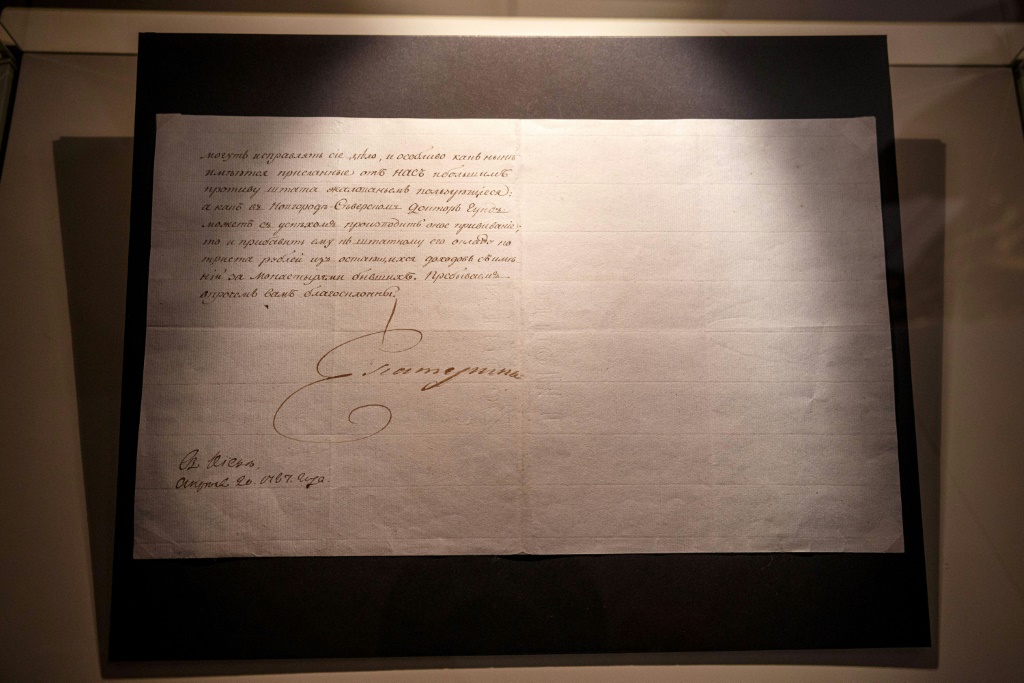 могутъ исправлять сіе дѣло, и особливо какъ нынѣ
имѣются присланные отъ НАСЪ и большимъ
противу штата жалованьемъ пользующіеся:
а какъ въ Новгородѣ Сѣверскомъ Докторъ
можетъ съ успѣхомъ производить оное прививаніе,
то и прибавить ему къ штатному его окладу по
триста рублей изъ остающихся доходовъ съ имѣ
ній за Монастырями бывшихъ. Пребываемъ
впрочемъ вамъ благосклонны.
Екатерина
Въ Кіевѣ.
Апреля 20. 1787. года